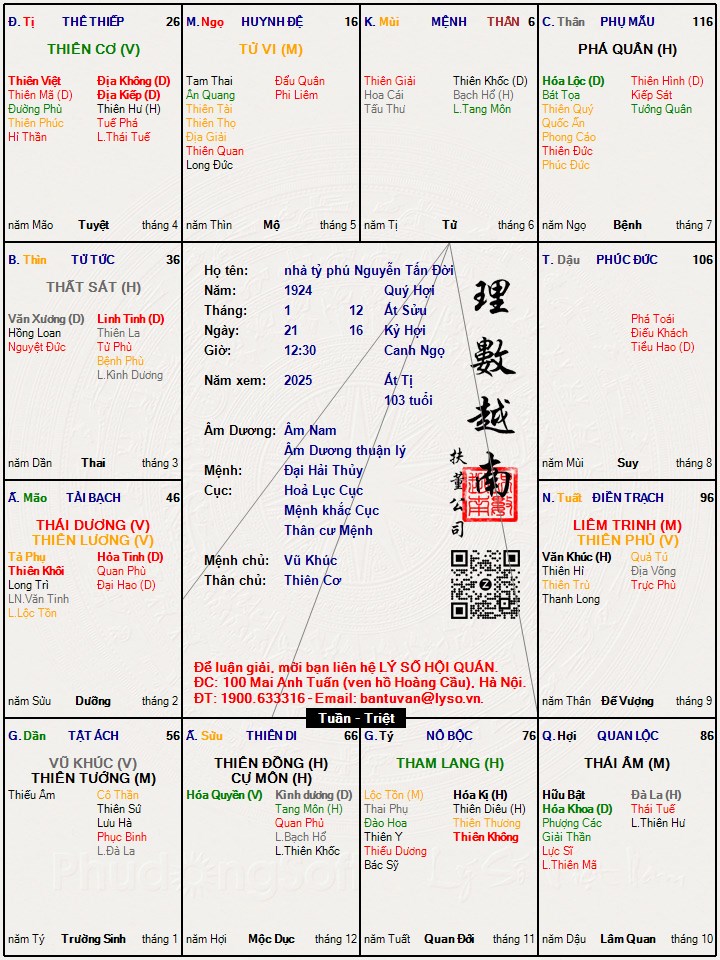 Đ. Tị THÊ THIẾP 26
THIÊN CƠ (V)
Thiên Việt Địa Không (D)
Thiên Mã (D) Địa Kiếp (D)
Đường Phù Thiên Hư (H)
Thiên Phúc Tuế Phá
Hỉ Thần L.Thái Tuế
năm Mão Tuyệt tháng 4
M. Ngọ HUYNH ĐỆ 16
TỬ VI (M)
Tam Thai Đẩu Quân
Ân Quang Phi Liêm
Thiên Tài
Thiên Thọ
Địa Giải
Thiên Quan
Long Đức
năm Thìn Mộ tháng 5
K. Mùi MỆNH THÂN 6
Thiên Giải Thiên Khốc (D)
Hoa Cái Bạch Hổ (H)
Tấu Thư L.Tang Môn
năm Tị Tử tháng 6
C. Thân PHỤ MẪU 116
PHÁ QUÂN (H)
Hóa Lộc (D) Thiên Hình (D)
Bát Tọa Kiếp Sát
Thiên Quý Tướng Quân
Quốc Ấn
Phong Cáo
Thiên Đức
Phúc Đức
năm Ngọ Bệnh tháng 7
B. Thìn TỬ TỨC 36
THẤT SÁT (H)
Văn Xương (D) Linh Tinh (D)
Hồng Loan Thiên La
Nguyệt Đức Tử Phù
Bệnh Phù
L.Kình Dương
năm Dần Thai tháng 3
Họ tên: nhà tỷ phú Nguyễn Tấn Đời
Năm: 1924 Quý Hợi
Tháng: 1 12 Ất Sửu
Ngày: 21 16 Kỷ Hợi
Giờ: 12:30 Canh Ngọ
Năm xem: 2025 Ất Tị
103 tuổi
Âm Dương: Âm Nam
Âm Dương thuận lý
Mệnh: Đại Hải Thủy
Cục: Hoả Lục Cục
Mệnh khắc Cục
Thân cư Mệnh
Mệnh chủ: Vũ Khúc
Thân chủ: Thiên Cơ
理數越南
扶董公司
Để luận giải, mời bạn liên hệ LÝ SỐ HỘI QUÁN.
ĐC: 100 Mai Anh Tuấn (ven hồ Hoàng Cầu), Hà Nội.
ĐT: 1900.633316 - Email: bantuvan@lyso.vn.
Tuần - Triệt
T. Dậu PHÚC ĐỨC 106
Phá Toái
Điếu Khách
Tiểu Hao (D)
năm Mùi Suy tháng 8
Ấ. Mão TÀI BẠCH 46
THÁI DƯƠNG (V)
THIÊN LƯƠNG (V)
Tả Phụ Hỏa Tinh (D)
Thiên Khôi Quan Phù
Long Trì Đại Hao (D)
LN.Văn Tinh
L.Lộc Tồn
năm Sửu Dưỡng tháng 2
N. Tuất ĐIỀN TRẠCH 96
LIÊM TRINH (M)
THIÊN PHỦ (V)
Văn Khúc (H) Quả Tú
Thiên Hỉ Địa Võng
Thiên Trù Trực Phù
Thanh Long
năm Thân Đế Vượng tháng 9
G. Dần TẬT ÁCH 56
VŨ KHÚC (V)
THIÊN TƯỚNG (M)
Thiếu Âm Cô Thần
Thiên Sứ
Lưu Hà
Phục Binh
L.Đà La
năm Tý Trường Sinh tháng 1
Ấ. Sửu THIÊN DI 66
THIÊN ĐỒNG (H)
CỰ MÔN (H)
Hóa Quyền (V) Kình dương (D)
Tang Môn (H)
Quan Phủ
L.Bạch Hổ
L.Thiên Khốc
năm Hợi Mộc Dục tháng 12
G. Tý NÔ BỘC 76
THAM LANG (H)
Lộc Tồn (M) Hóa Kị (H)
Thai Phụ Thiên Diêu (H)
Đào Hoa Thiên Thương
Thiên Y Thiên Không
Thiếu Dương
Bác Sỹ
năm Tuất Quan Đới tháng 11
Q. Hợi QUAN LỘC 86
THÁI ÂM (M)
Hữu Bật Đà La (H)
Hóa Khoa (D) Thái Tuế
Phượng Các L.Thiên Hư
Giải Thần
Lực Sĩ
L.Thiên Mã
năm Dậu Lâm Quan tháng 10